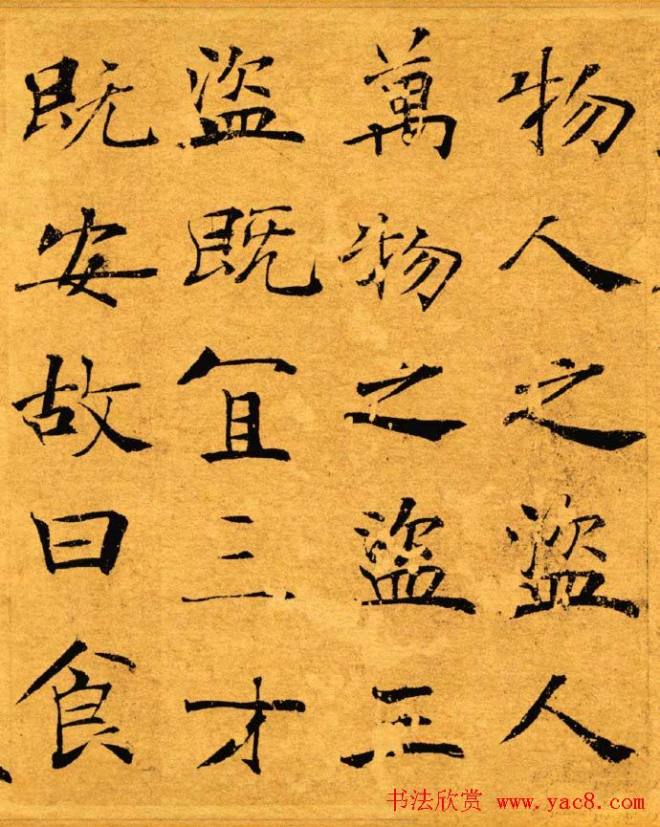 物人之盗人
萬物之盗三
盗既宜三才
既安故曰食
书法欣赏 www.yac8.com